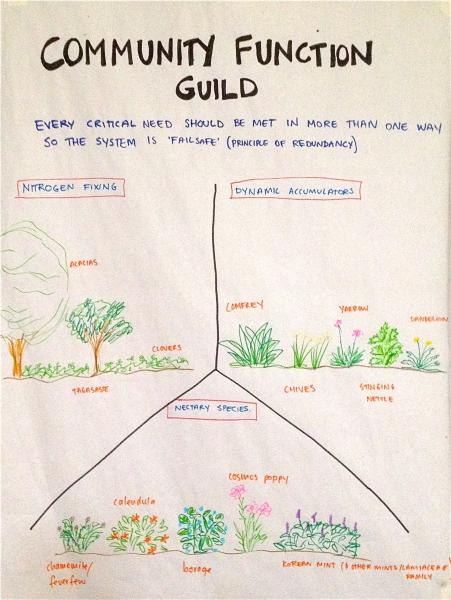 COMMUNITY FUNCTION
GUILD
EVERY CRITICAL NEED SHOULD BE MET IN MORE THAN ONE WAY
SO THE SYSTEM IS 'FAILSAFE' (PRINCIPLE OF REDUNDANCY)
NITROGEN FIXING
ACACIAS
CLOVERS
TAGASASTE
DYNAMIC ACCUMULATORS
COMFREY
YARROW
DANDELION
CHIVES
STINGING
NETTLE
NECTARY SPECIES.
cosmos poppy
calendula
chamomile/
feverfew
borage
KOREAN MINT (& OTHER MINTS/LAMIACEAE
FAMILY